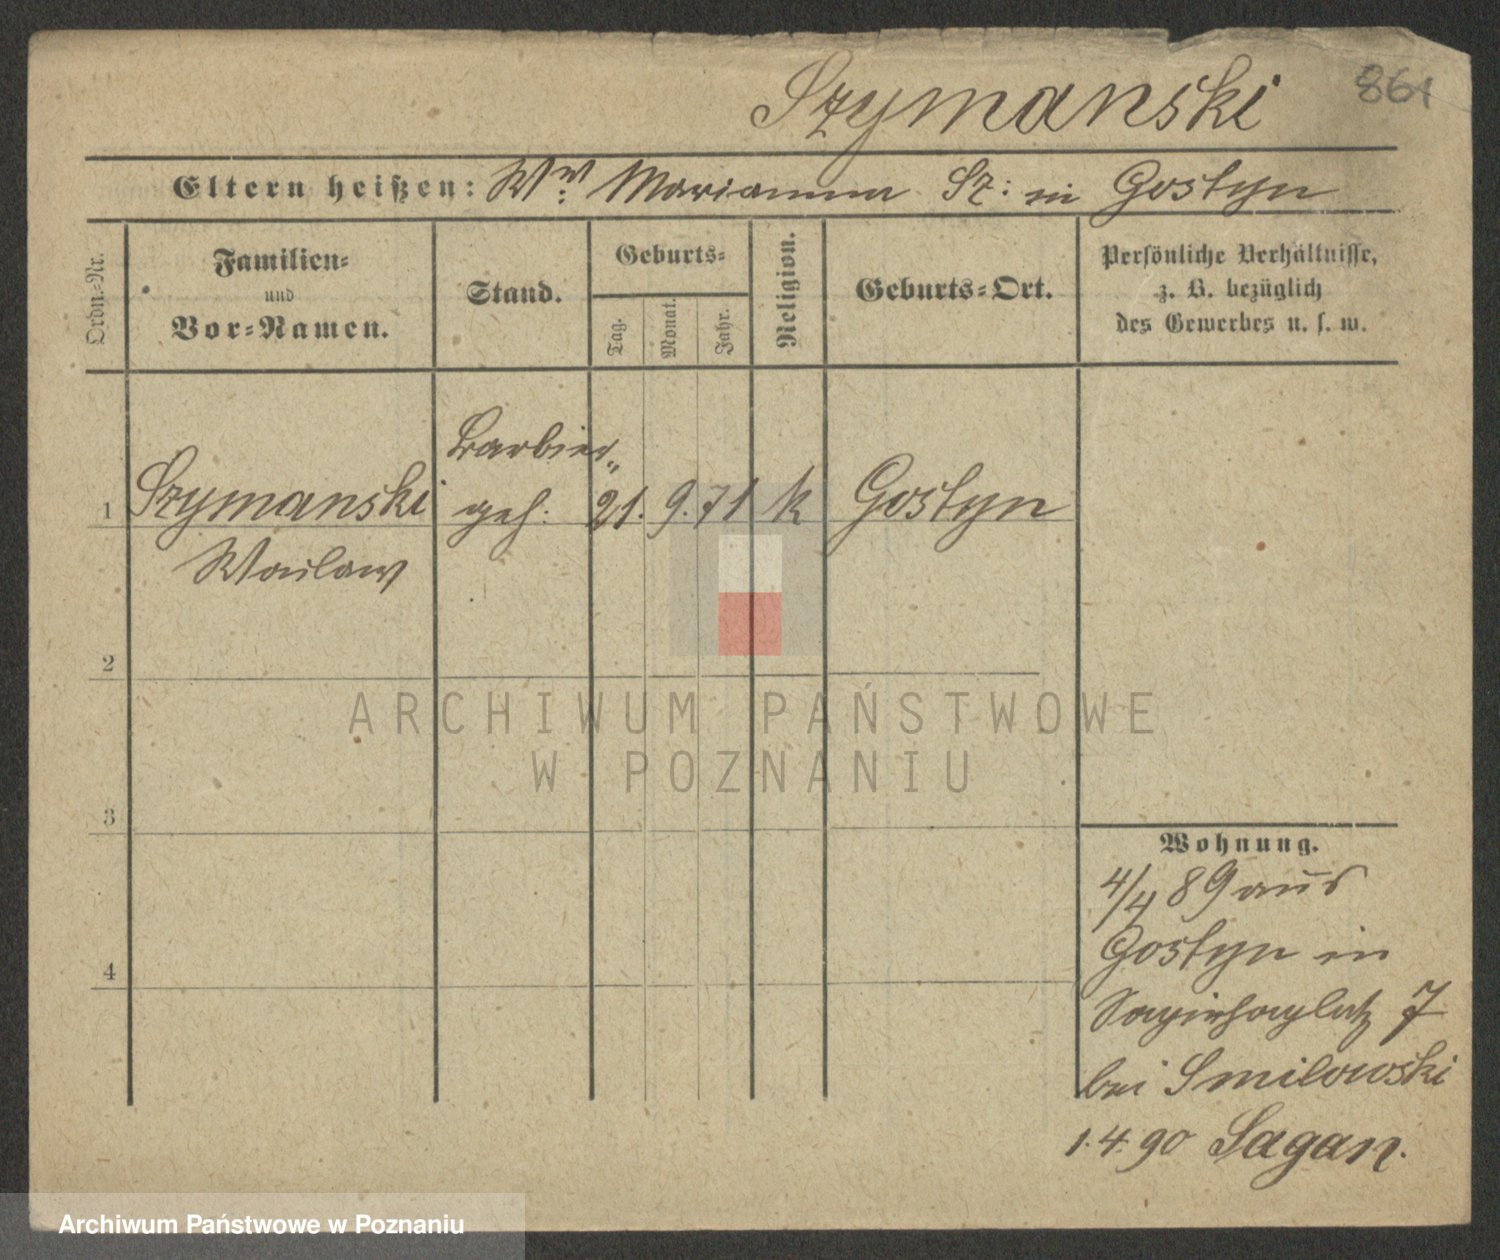 Szymanski
861
Eltern heißen: Ww. Marianna Sz: in Gostyn
Ordn.-Nr.
Familien-
und
Vor-Namen.
Stand.
Geburts-
Tag.
Monat.
Jahr.
Religion.
Geburts-Ort.
Persönliche Verhältnisse,
z. B. bezüglich
des Gewerbes u. s. w.
Barbier„
1 Szymanski geh: 21. 9. 71 k Gostyn
Waclaw
2
3
4
Wohnung.
4/4 89 aus
Gostyn in
Sapiehaplatz 7
bei Smilowski
1.4.90 Sagan.
ARCHIWUM PAŃSTWOWE
W POZNANIU
Archiwum Państwowe w Poznaniu